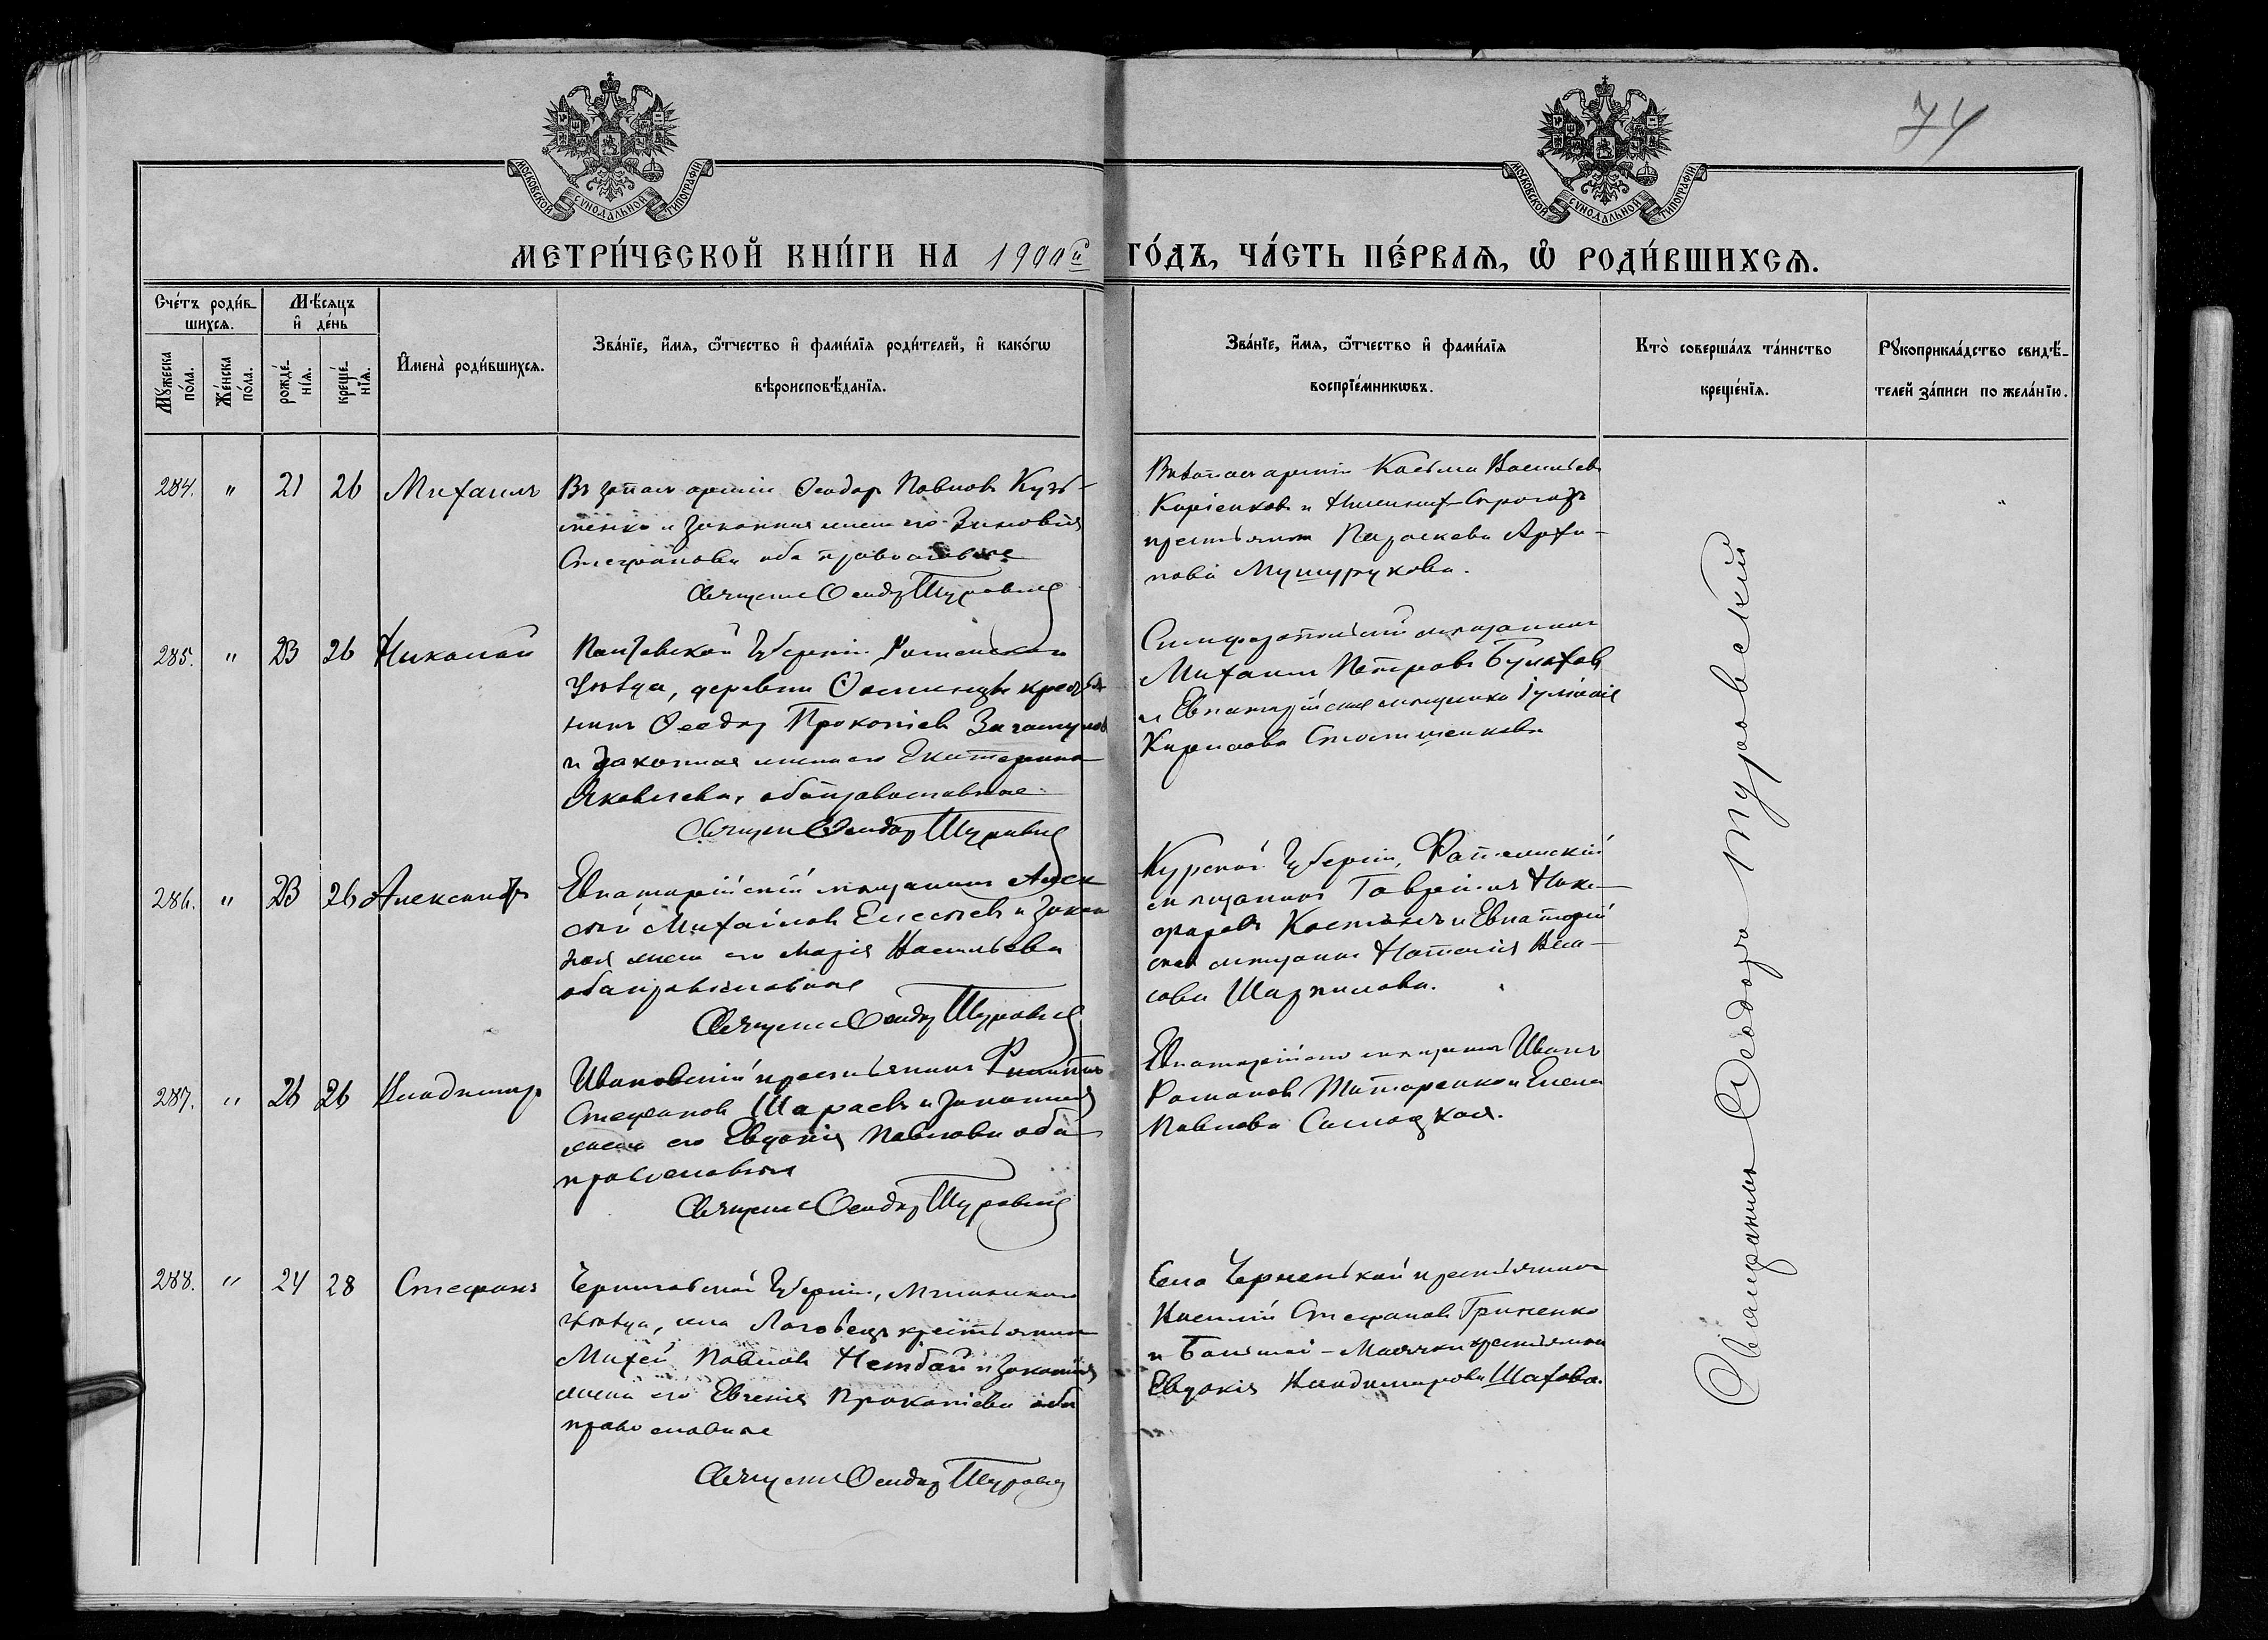 74
МОСКОВСКОЙ СУНОДАЛЬНОЙ ТИПОГРАФІИ.
МОСКОВСКОЙ СУНОДАЛЬНОЙ ТИПОГРАФІИ.
МЕТРИ́ЧЕСКОЙ КНИ́ГИ НА 1900й ГО́ДЪ, ЧА́СТЬ ПЕ́РВАЯ, Ѡ РОДИ́ВШИХСЯ.
Сче́тъ роди́в-
шихся.
Мꙋ́жеска
по́ла.
Же́нска
по́ла.
Мѣ́сяцъ
и де́нь
рожде́-
нїя.
креще́-
нїя.
Имена̀ роди́вшихся.
Зва́нїе, и́мя, ѻ́тчество и фами́лїя роди́телей, и како́гѡ
вѣроисповѣ́данїя.
Зва́нїе, и́мя, ѻ́тчество и фами́лїя
воспрїе́мникѡвъ.
Кто̀ соверша́лъ та́инство
креще́нїя.
Рꙋкоприкла́дство свидѣ́-
телей за́писи по жела́нїю.
284. " 21 26 Михаилъ
Въ запасѣ арміи Ѳеодоръ Павловъ Кузь-
менко и законная жена его Зиновія
Стефанова оба православные
Священникъ Ѳеодоръ Туровскій
Въ запасѣ арміи Косьма Васильевъ
и
крестьянка Параскева Архи-
пова Мушурукова.
285. " 23 26 Николай
Полтавской Губерніи Роменскаго
Уѣзда, деревни крестья-
нинъ Ѳеодоръ Прокопіевъ
и законная жена его Екатерина
Яковлева, оба православные
Священникъ Ѳеодоръ Туровскій
Симферопольскій мѣщанинъ
Михаилъ Петровъ Булаховъ
и Евпаторійская мѣщанка Іуліанія
Кирилова
286. " 23 26 Александръ
Евпаторійскій мѣщанинъ Алек-
сѣй Михайловъ Елисѣевъ и закон-
ная жена его Марія Васильева
оба православные
Священникъ Ѳеодоръ Туровскій
Курской Губерніи, Фатежскій
мѣщанинъ Гавріилъ Ники-
форовъ и Евпаторій-
ская мѣщанка Наталія Вла-
сова Шарпилова.
287. " 26 26 Владимиръ
Ивановскій крестьянинъ Филиппъ
Стефановъ Шараевъ и законная
жена его Евдокія Павлова оба
православные
Священникъ Ѳеодоръ Туровскій
Евпаторійскій мѣщанинъ Иванъ
Романовъ Титаренко и Елена
Павлова
288. " 24 28 Стефанъ
Черниговской Губерніи, Мглинскаго
Уѣзда, села крестьянинъ
Михей Павловъ и законная
жена его Евгенія Прокопіева оба
православные
Священникъ Ѳеодоръ Туровскій
Села крестьянинъ
Василій Стефановъ Гриненко
и крестьянка
Евдокія Владимирова Шахова.
Священникъ Ѳеодоръ Туровскій